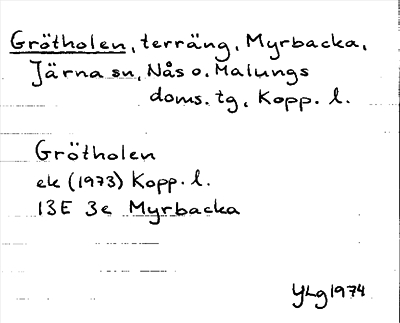 Grötholen, terräng, Myrbacka,
Järna sn, Nås o. Malungs
doms. tg, Kopp. l.
Grötholen
ek (1973) Kopp. l.
13E 3e Myrbacka
YLg 1974